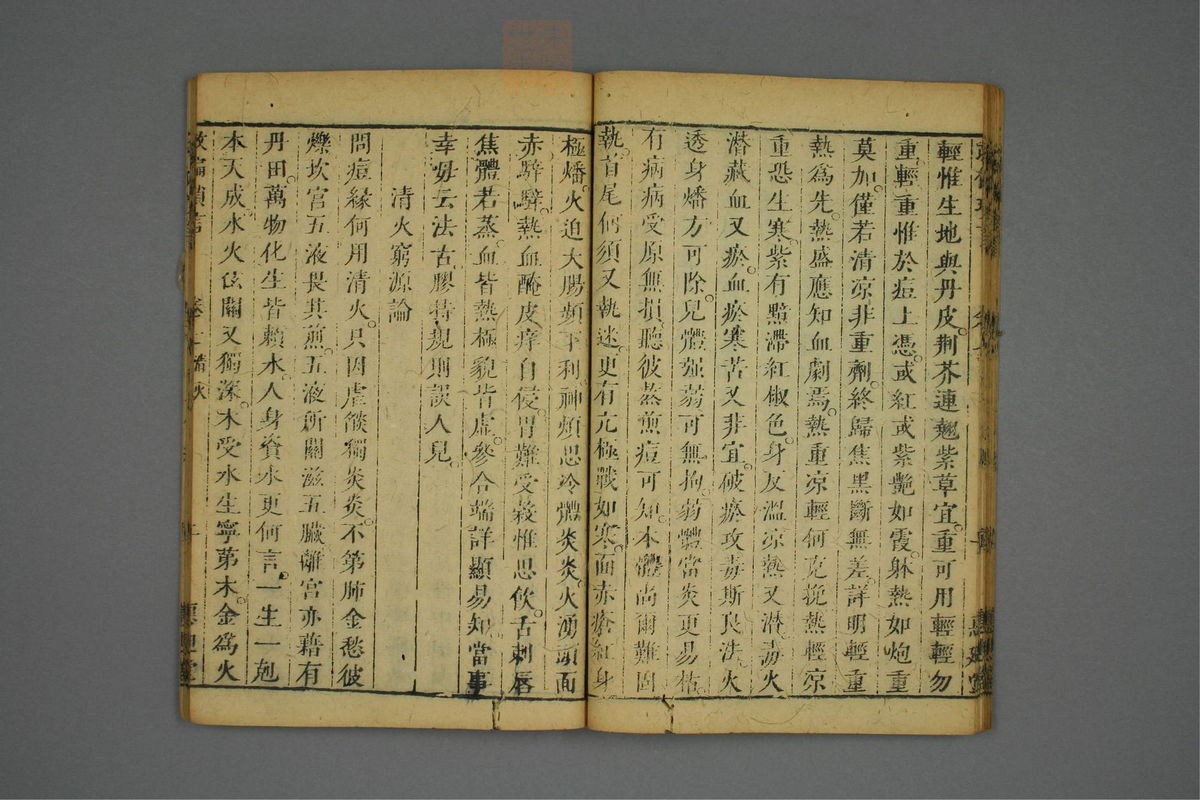 輕惟生地與丹皮荆芥連翹紫草宜重可用輕輕勿
重輕重惟於痘上憑或紅或紫艷如霞躰熱如炮重
莫加僅若清凉非重劑終歸焦黒斷無差詳明輕重
熱為先熱盛應知血劇焉熱重凉輕何克挽熱輕凉
重恐生寒紫有點滯紅椒色身反溫凉熱又潜毒火
潜藏血又瘀血瘀寒苦又非宜破瘀攻毒斯良法火
透身燔方可除兒體强弱可無拘弱體當炎更易枯
有病病受原無損聽彼蒸煎痘可知本體尚爾難固
執首尾何須又執迷更有亢極戰如寒面赤瘡紅身
極燔火迫大腸頻下利神煩思冷體炎炎火湧頭面
赤騂騂熱血醃皮痒自侵胃難受榖惟思飲舌刺唇
焦體若蒸血皆熱極貌皆虚參合端詳顯易知當事
幸毋云法古膠持規則誤人兒
清火窮源論
問痘緣何用清火只因虚燄獨炎炎不第肺金愁彼
爍坎宫五液畏其煎五液所關滋五臟離宫亦藉有
丹田萬物化生皆賴水人身資水更何言一生一剋
本天成水火玄關又獨深木受水生寧第木金為火